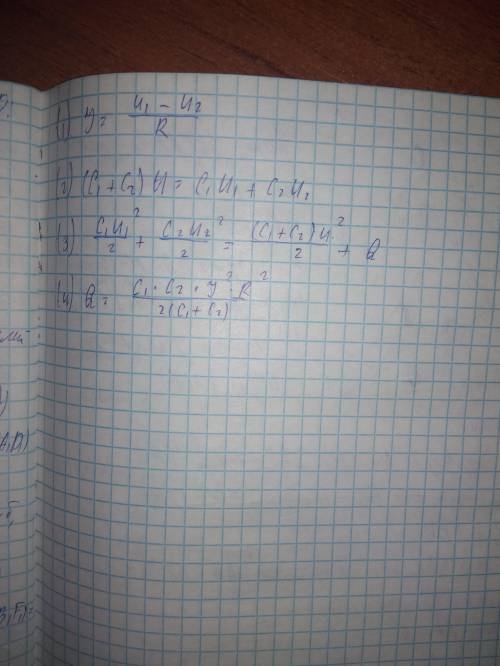 (1) У = (U₁ - U₂)/R
(2) (C₁ + C₂) U = C₁U₁ + C₂U₂
(3) C₁U₁²/2 + C₂U₂²/2 = (C₁+C₂)U²/2 + Q
(4) Q = C₁ · C₂ · У² · R²/2(C₁ + C₂)